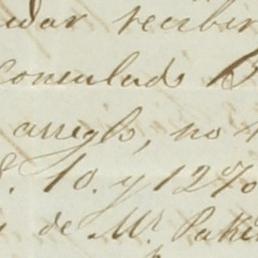 recibir
consulado
arreglo, no
10. y 12%
de Mr. Pake